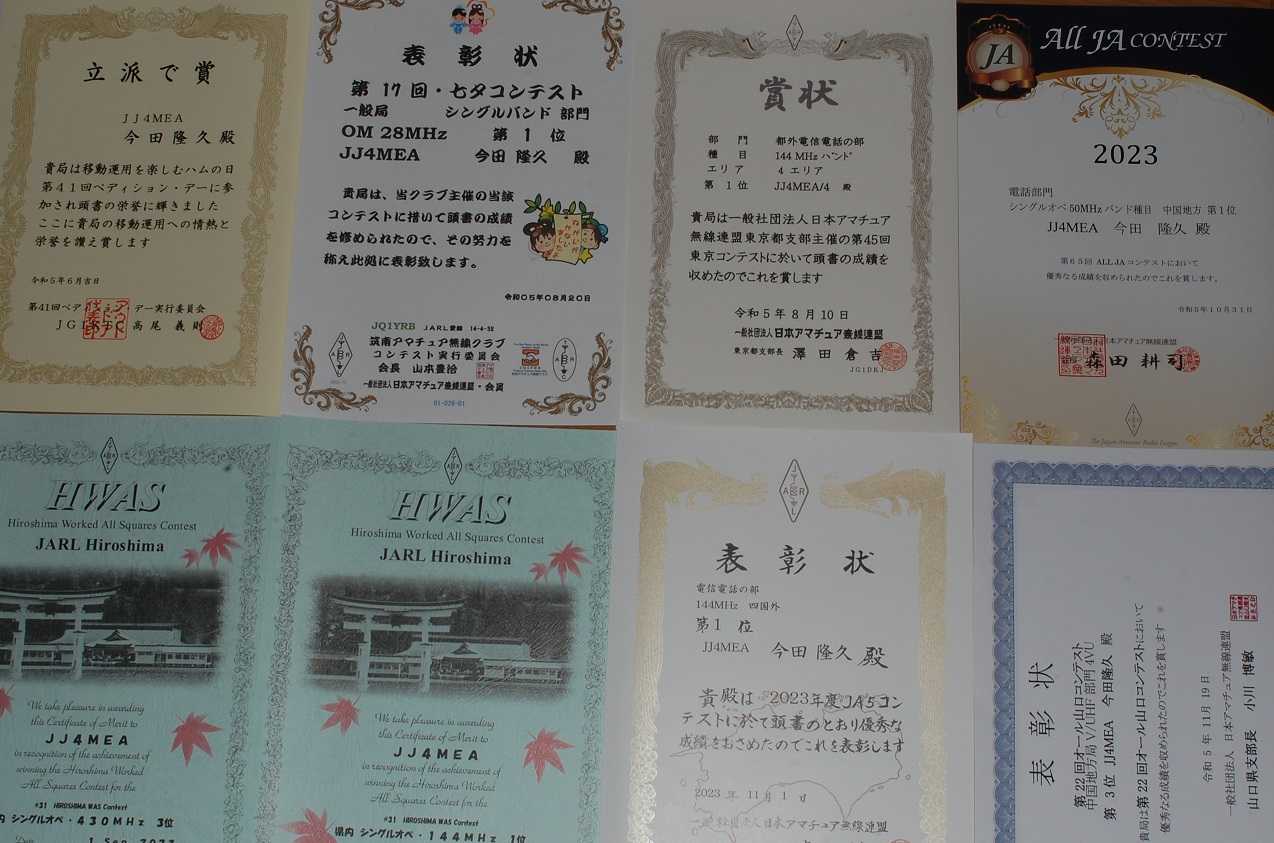 立派で賞
JJ4MEA
今田隆久殿
貴局は移動運用を楽しむハムの日
第41回ペディション・デーに参
加され頭書の栄誉に輝きました
ここに貴局の移動運用への情熱と
栄誉を讃え賞します
令和5年6月吉日
第41回ペディション・デー実行委員会
高尾 義則
表彰状
第17回・七夕コンテスト
一般局 シングルバンド 部門
OM 28MHz 第 1 位
JJ4MEA 今田 隆久 殿
貴局は、当クラブ主催の当該
コンテストに措いて頭書の成績
を修められたので、その努力を
称え此処に表彰致します。
令和05年08月20日
JQ1YRB JARL登録 14-4-32
筑南アマチュア無線クラブ
コンテスト実行委員会
会長 山本豊拾
一般社団法人日本アマチュア無線連盟・会員
01-028-01
賞状
部 門 都外電信電話の部
種 目 144 MHz バンド
エリア 4 エリア
第 1 位 JJ4MEA/4 殿
貴局は一般社団法人日本アマチュア
無線連盟東京都支部主催の第45回
東京コンテストに於いて頭書の成績を
収めたのでこれを賞します
令和5年8月10日
一般社団法人日本アマチュア無線連盟
東京都支部長 澤田倉吉
JG1DKJ
JA
All JA CONTEST
2023
電話部門
シングルオペ 50MHz バンド種目 中国地方 第1位
JJ4MEA 今田 隆久 殿
第65回 ALL JA コンテストにおいて
優秀なる成績を収められたのでこれを賞します。
令和5年10月31日
日本アマチュア無線連盟
森田耕司
The Japan Amateur Radio League
HWAS
Hiroshima Worked All Squares Contest
JARL Hiroshima
We take pleasure in awarding
this Certificate of Merit to
JJ4MEA
in recognition of the achievement of
winning the Hiroshima Worked
All Squares Contest for the
#31 HIROSHIMA WAS Contest
内 シングルオペ・430MHz 3位
1 Sep 2023
HWAS
Hiroshima Worked All Squares Contest
JARL Hiroshima
We take pleasure in awarding
this Certificate of Merit to
JJ4MEA
in recognition of the achievement of
winning the Hiroshima Worked
All Squares Contest for the
#31 HIROSHIMA WAS Contest
県内 シングルオペ・144MHz 1位
JARL
表彰状
電信電話の部
144MHz 四国外
第1位
JJ4MEA 今田 隆久 殿
貴殿は 2023年度JA5コン
テストに於て頭書のとおり優秀な
成績をおさめたのでこれを表彰します
2023年 11月 1日
一般社団法人日本アマチュア無線連盟
表彰状
第22回オール山口コンテスト
中国地方局 V/UHF 部門 4VU
第 3 位 JJ4MEA 今田隆久 殿
貴局は第22回オール山口コンテストにおいて
優秀なる成績を収められたのでこれを賞します
令和 5年 11月 19日
一般社団法人 日本アマチュア無線連盟
山口県支部長 小川 博敏